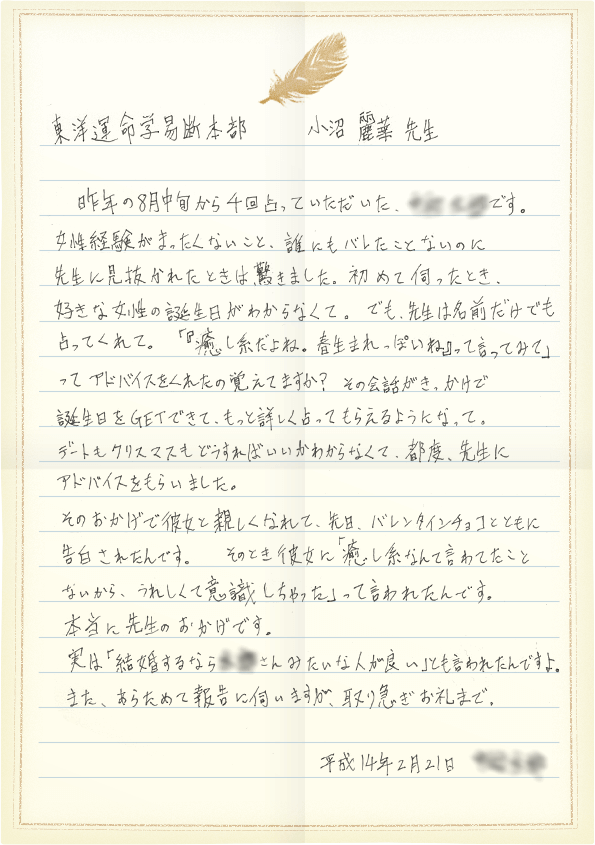 東洋運命学易断本部　小沼 麗華 先生
昨年の8月中旬から4回占っていただいた、です。
女性経験がまったくないこと、誰にもバレたことないのに
先生に見抜かれたときは驚きました。初めて伺ったとき、
好きな女性の誕生日がわからなくて。でも、先生は名前だけでも
占ってくれて。「『癒し系だよね。春生まれっぽいね』って言ってみて」
ってアドバイスをくれたの覚えてますか？その会話がきっかけで
誕生日をGETできて、もっと詳しく占ってもらえるようになって。
デートもクリスマスもどうすればいいかわからなくて、都度、先生に
アドバイスをもらいました。
そのおかげで彼女と親しくなれて、先日、バレンタインチョコとともに
告白されたんです。そのとき彼女に「癒し系なんて言わてたこと
ないから、うれしくて意識しちゃった」って言われたんです。
本当に先生のおかげです。
実は「結婚するならさんみたいな人が良い」とも言われたんですよ。
また、あらためて報告に伺いますが、取り急ぎお礼まで。
平成14年2月21日